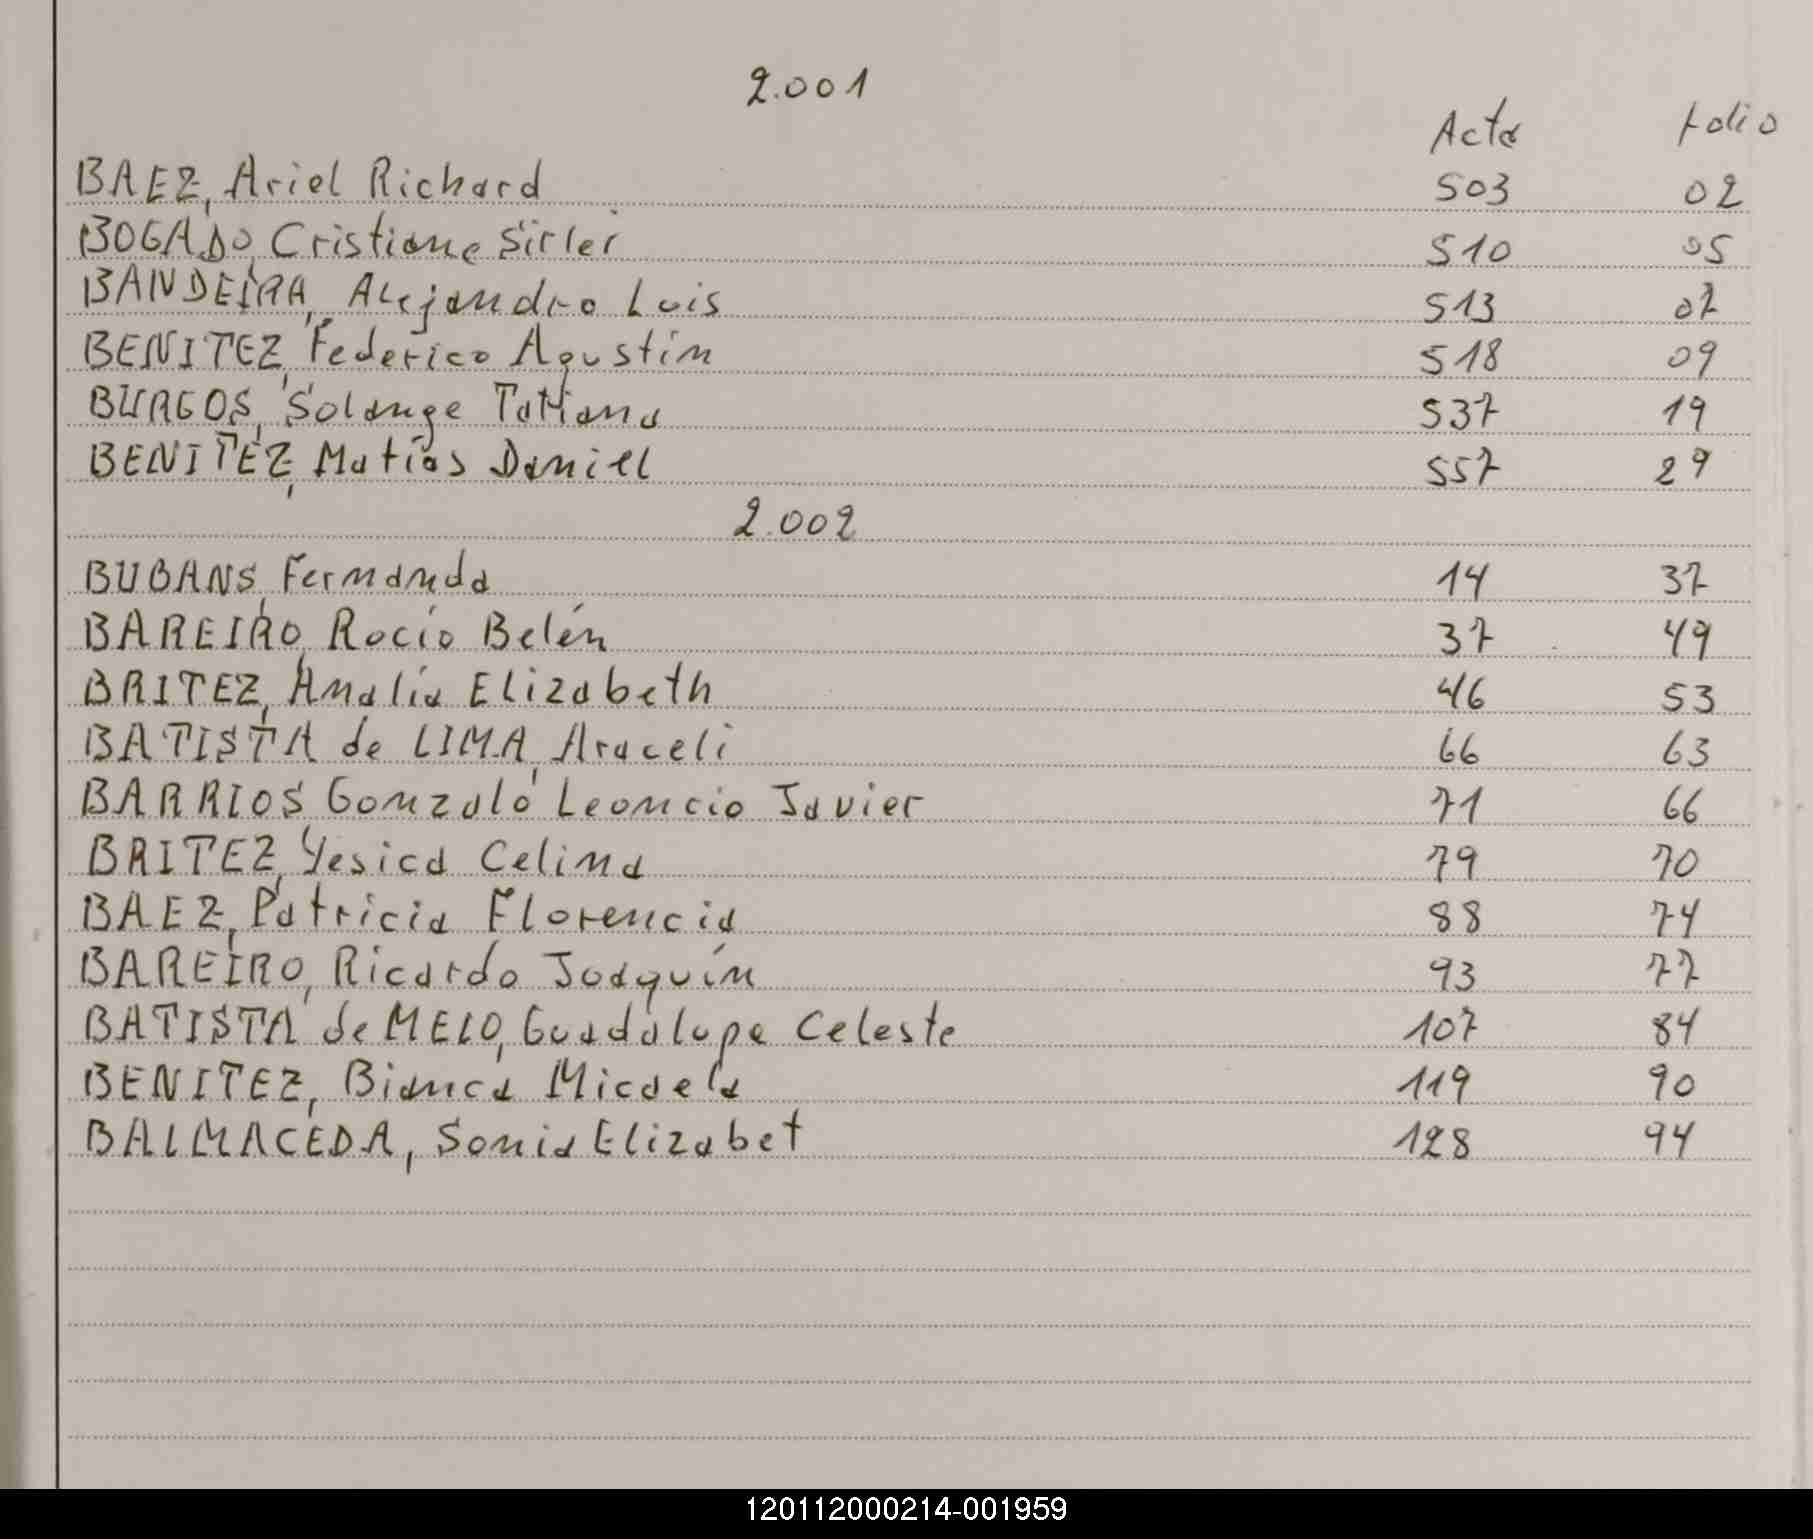 2.001
Acta folio
BAEZ, Ariel Richard 503 02
BOGADO, Cristiane Sirlei 510 05
BANDEIRA, Alejandro Luis 513 07
BENITEZ, Federico Agustín 518 09
BURGOS, Solange Tatiana 537 19
BENITEZ, Matías Daniel 557 29
2.002
BUBANS, Fernanda 14 37
BAREIRO, Rocío Belén 37 49
BRITEZ, Analía Elizabeth 46 53
BATISTA de LIMA, Araceli 66 63
BARRIOS Gonzalo Leoncio Javier 71 66
BRITEZ, Yesica Celina 79 70
BAEZ, Patricia Florencia 88 74
BAREIRO, Ricardo Joaquín 93 77
BATISTA de MELO, Guadalupe Celeste 107 84
BENITEZ, Bianca Micaela 119 90
BALMACEDA, Sonia Elizabet 128 94
120112000214-001959